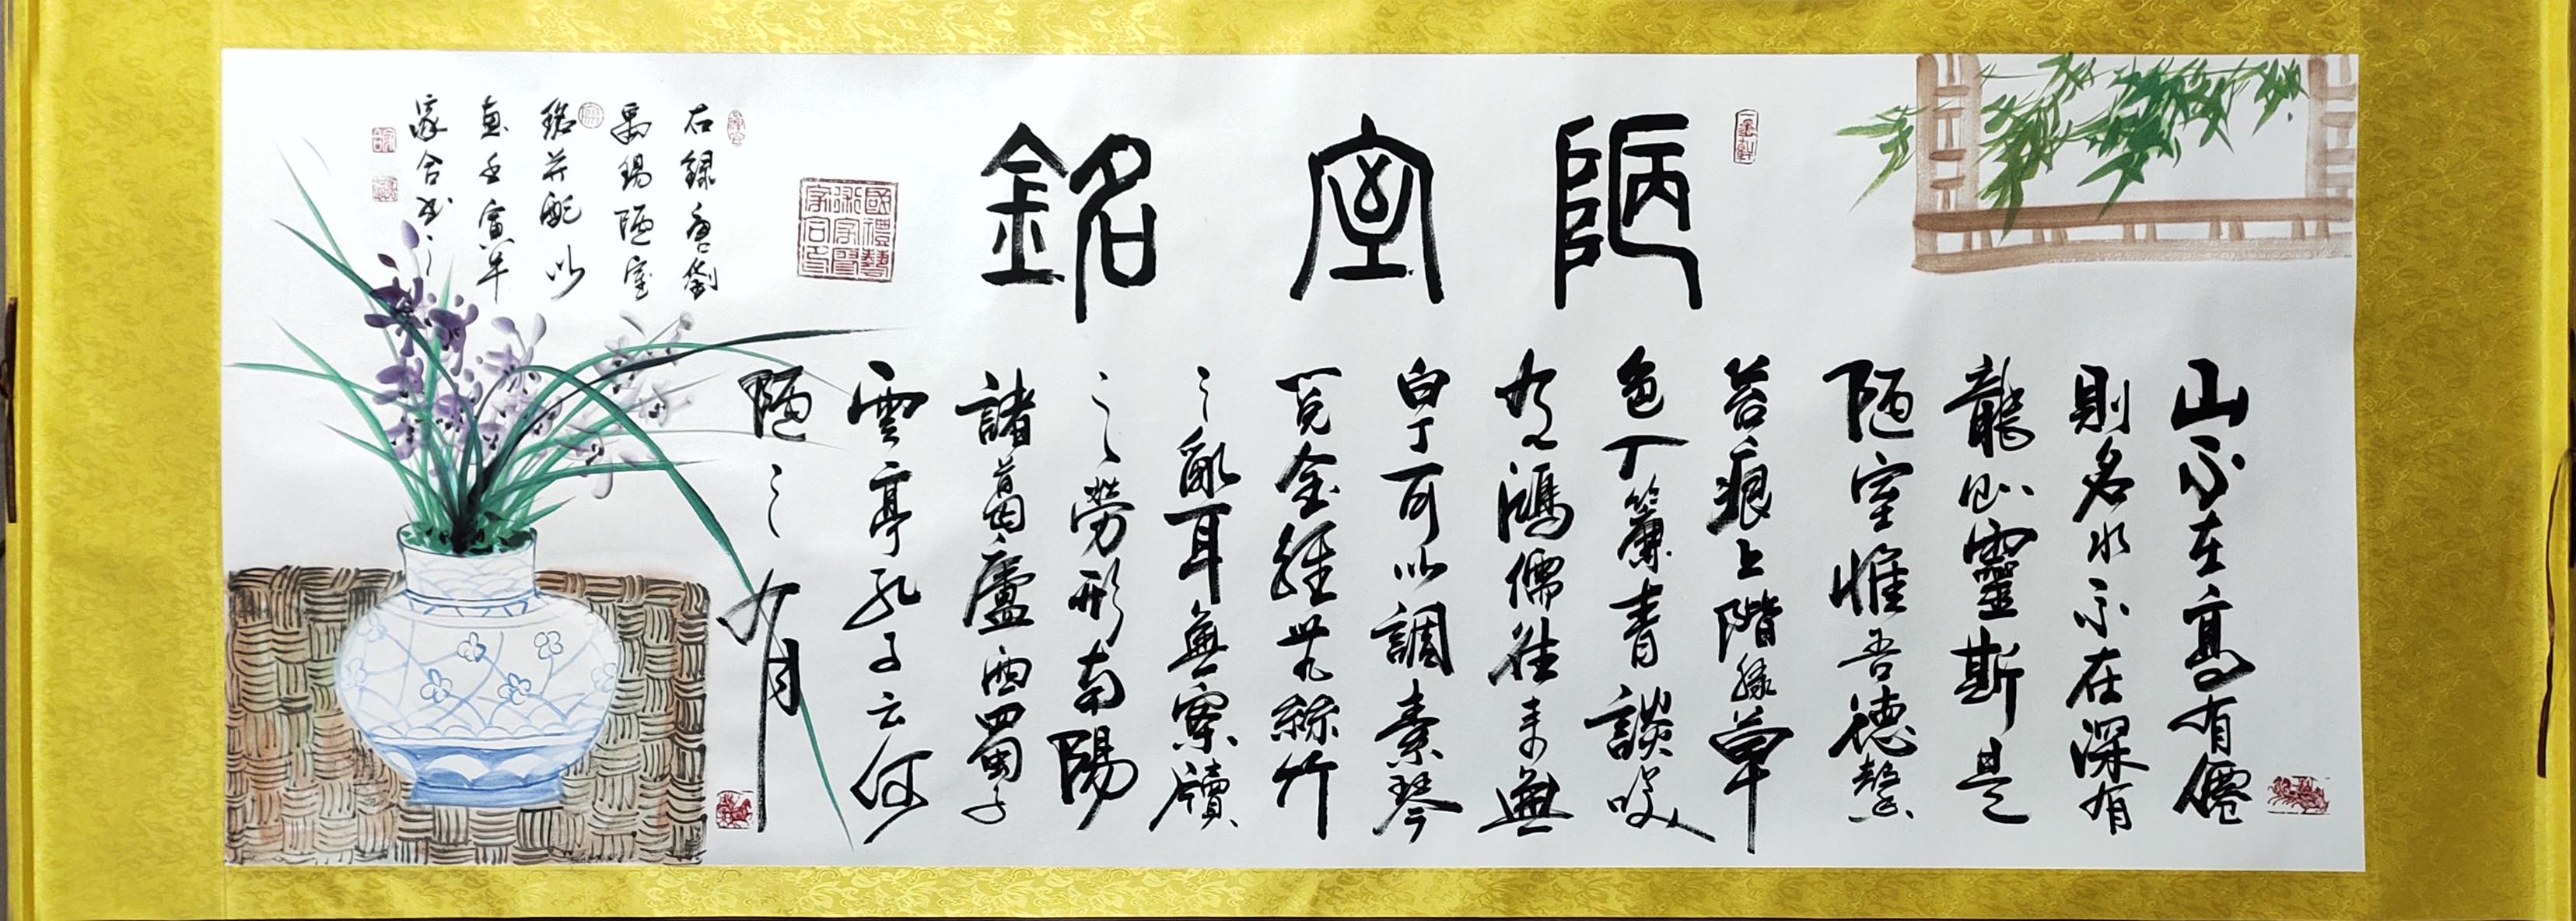 陋室銘
山不在高有僊
則名水不在深有
龍則靈斯是
陋室惟吾德馨
苔痕上階緑草
色入簾青談笑
有鴻儒往来無
白丁可以調素琴
閲金經無絲竹
之亂耳無案牘
之勞形南陽
諸葛廬西蜀子
雲亭孔子云何
陋之有
國禮藝
術家賀
家合印
右録唐劉
禹錫陋室
銘并配以
畫壬寅年
家合书